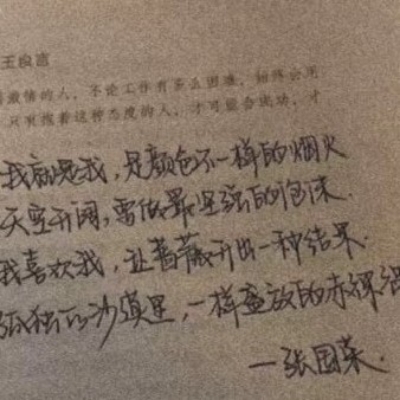 王良言
激情的人，不论工作有多么困难，始终会用
只有抱着这种态度的人，才可能会成功，才
我就是我，是颜色不一样的烟火
天空开阔，要做最坚强的泡沫.
我喜欢我，让蔷薇开出一种结果.
孤独的沙漠里，一样盛放的赤裸裸
—张国荣.